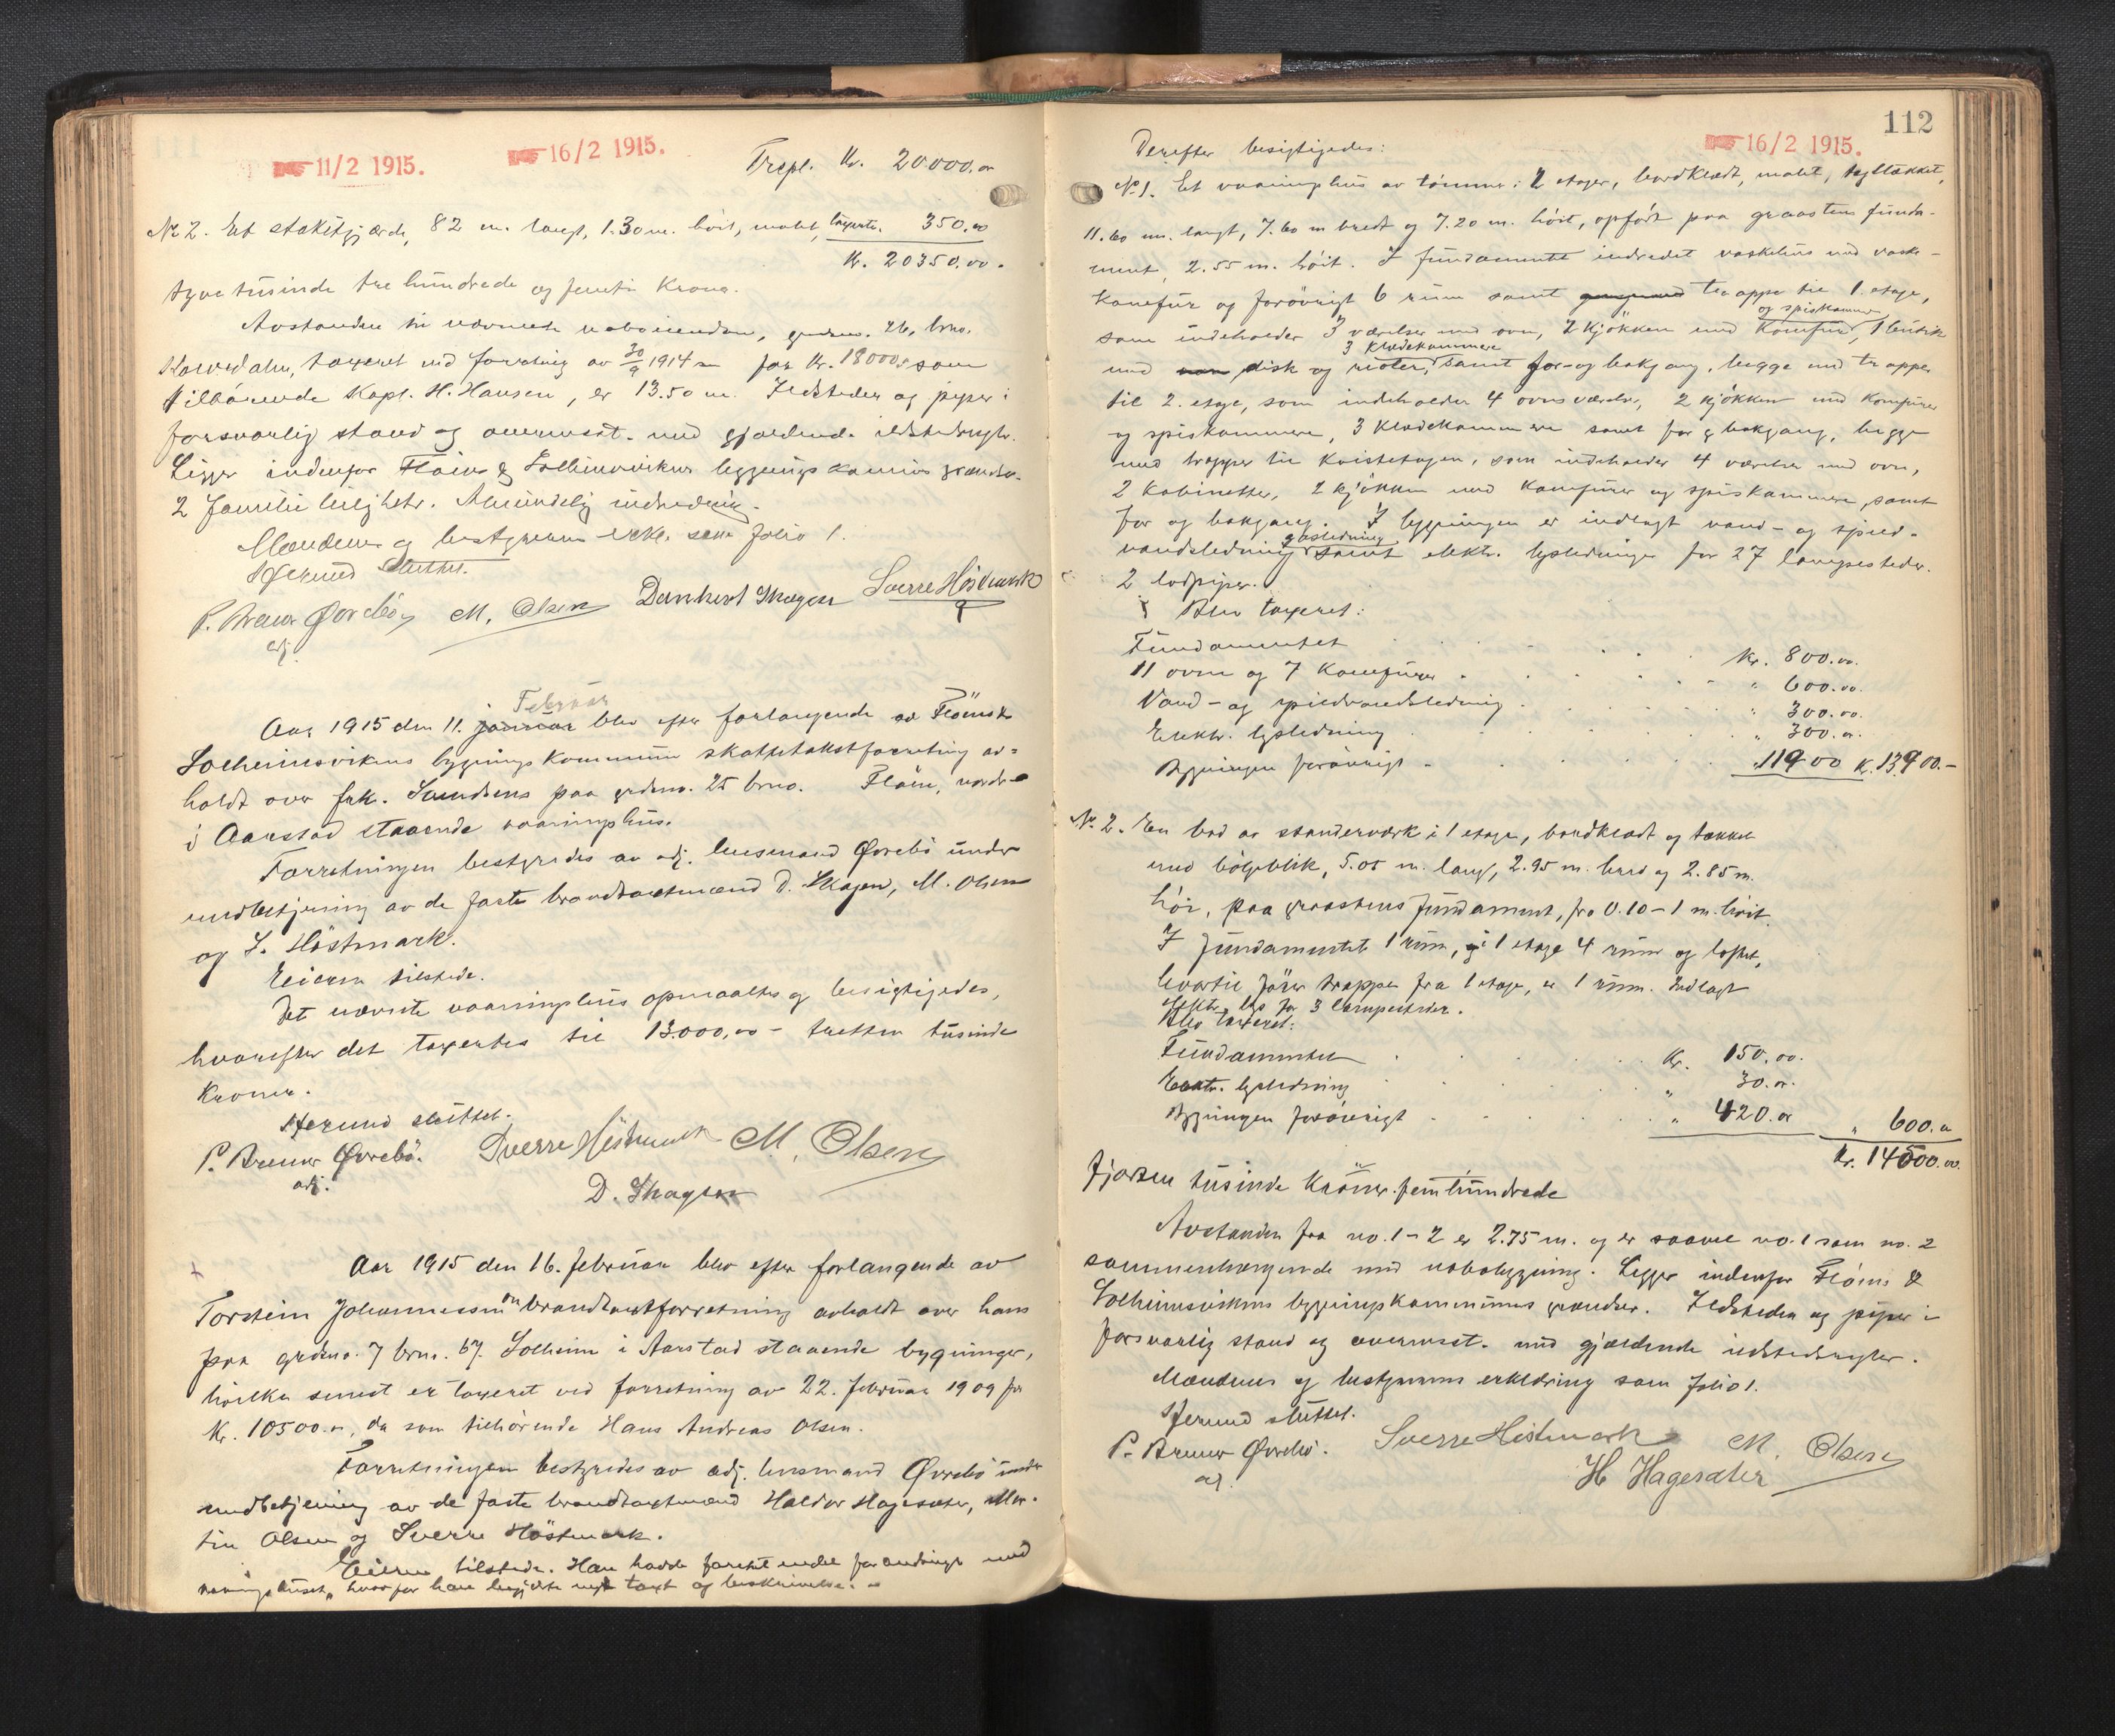 11/2 1915.
16/2 1915.
Trspl. Kr. 20000.00
No 2. Et stakitgjærde, 82 m. langt, 1.30 m. høit, malet, taxertes 350.00
Kr. 20350.00.
tyve tusinde tre hundrede og femti Kroner.
Avstanden til nævneste naboeiendom, grdsno. 26, brno.
taxeret ved forretning av 30/9 1914 for Kr. 18000.00 som
tilhørende Kapt. H. Hansen, er 13.50 m. Ildsteder og piper i
forsvarlig stand og overensst. med gjældende ildstedsregler.
Ligger indenfor Fløins & Solheimsvikens bygningskommunes grændser.
2 familieleiligheter. Almindelig indredning.
Mændenes og bestyrerens erkl. som folio 1.
Hermed sluttet.
P. Brener Øvrebø, M. Olsen Dankert Skagen Sverre Höstmark
adj.
Februar
Aar 1915 den 11. januar blev efter forlangende av Fløins &
Solheimsvikens bygningskommune skattetakstforretning av-
holdt over frk. Svendsens paa grdsno. 25 brno. Fløin, nordre
i Aarstad staaende vaaningshus.
Forretningen bestyredes av adj. lensmand Øvrebø under
medbetjening av de faste brandtaxtmænd D. Skagen, M. Olsen
og S. Höstmark.
Eieren tilstede.
Det nævnte vaaningshus opmaaltes og besigtigedes,
hvorefter det taxertes til 13.000,00 - tretten tusinde
Kroner.
Hermed sluttet.
P. Brener Øvrebø. Sverre Höstmark M. Olsen
adj.
D. Skagen
Aar 1915 den 16. februar blev efter forlangende av
Torstein Johannessen brandtaxtforretning avholdt over hans
paa grdsno. 7 brno. 67. Solheim i Aarstad staaende bygninger,
hvilke senest er taxeret ved forretning av 22. februar 1909 for
Kr. 10500.00, da som tilhørende Hans Andreas Olsen.
Forretningen bestyredes av adj. lensmand Øvrebø under
medbetjening av de faste brandtaxtmænd Haldor Hagesæter, Mar-
tin Olsen og Sverre Höstmark.
Eieren tilstede. Han hadde foretat endel forandringer ved
vaaningshuset, hvorfor han begjærte ny taxt og beskrivelse.
112
16/2 1915.
Derefter besigtigedes:
No 1. Et vaaningshus av tømmer i 2 etager, bordklædt, malet, tegltækket,
11.60 m. langt, 7.60 m bredt og 7.20 m. høit, opført paa graastens funda-
ment, 2.55 m. høit. I fundamentet indredet vaskehus med vaske-
komfur og forøvrigt 6 rum samt trapper til 1. etage,
og spiskammer
som indeholder 3 værelser med ovn, 2 kjøkken med Komfur, 1 butik
3 klædekammere
med disk og reoler, samt for- og bakgang, begge med trapper
til 2. etage, som indeholder 4 ovnsværelser, 2 kjøkken med Komfurer
og spiskammere, 3 klædekammere samt for og bakgang, begge
med trapper til kvistetagen, som indeholder 4 værelser med ovn,
2 kabinetter, 2 kjøkken med komfurer og spiskammere, samt
for og bakgang. I bygningen er indlagt vand- og spild-
gasledning
vandsledning samt elektr. lysledninger for 27 lampesteder.
2 lodpiper.
Blev taxeret:
Fundamentet Kr. 800.00.
11 ovne og 7 Komfurer " 600.00.
Vand- og spildvandsledning " 300.00.
Elektr. lysledning " 300.00.
Bygningen forøvrigt " 11900 K. 13900.-
No. 2. En bod av standerværk i 1 etage, bordklædt og tækket
med bølgeblik, 5.05 m. lang, 2.95 m. bred og 2.85 m.
høi, paa graastens fundament, fra 0.10 - 1 m. høit.
I fundamentet 1 rum, i 1 etage 4 rum og loftet,
hvortil fører trapper fra 1 etage, er 1 rum. Indlagt
elektr. lys for 3 lampesteder.
Blev taxeret:
Fundamentet Kr. 150.00.
Elektr. lysledning " 30.00.
Bygningen forøvrigt " 420.00 " 600.00
Kr. 14500.00.
fjorten tusinde Kroner. femhundrede
Avstanden fra no. 1 - 2 er 2.75 m. og er saavel no. 1 som no. 2
sammenhængende med nabobygning. Ligger indenfor Fløins &
Solheimsvikens bygningskommunes grændser. Ildsteder og piper i
forsvarlig stand og overensst. med gjældende ildstedsregler.
Mændenes og bestyrerens erklæring som folio 1.
Hermed sluttet.
P. Brener Øvrebø. Sverre Höstmark M. Olsen
adj.
H Hagesæter